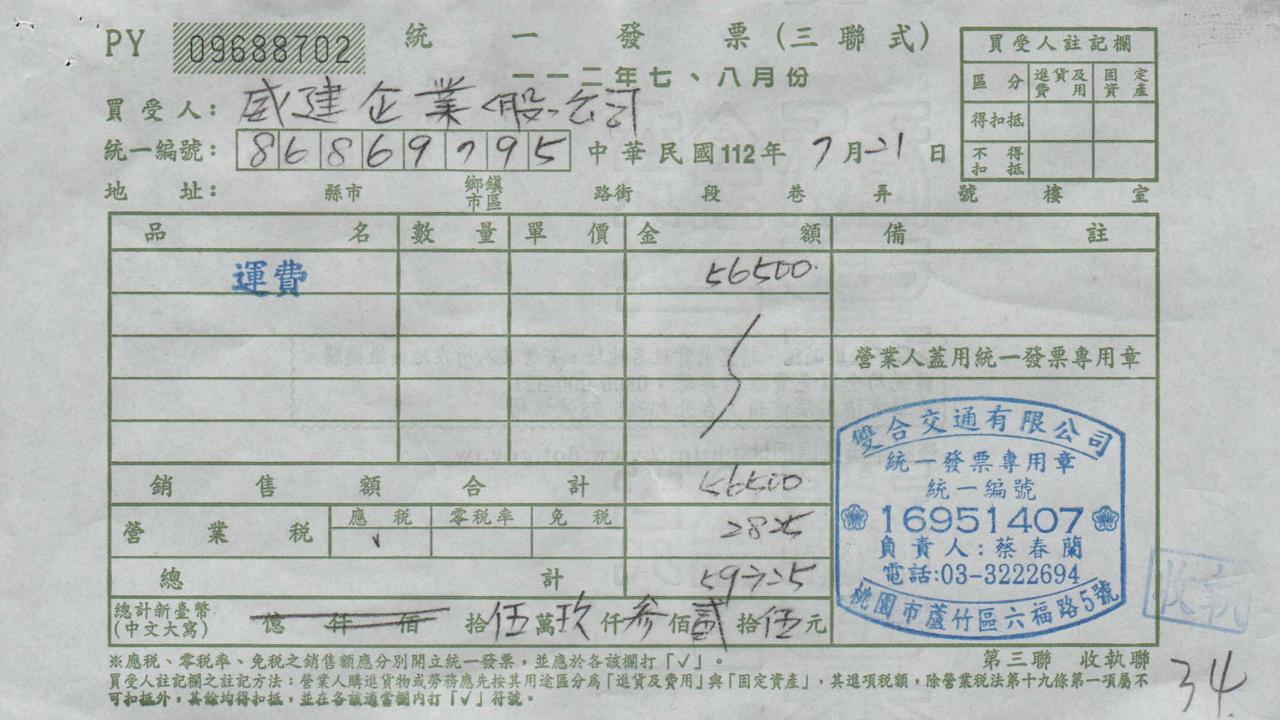 PY 09688702 統一發票(三聯式)
一一二年七、八月份
買受人: 威建企業(股)公司
統一編號: 86869795 中華民國112年 7月21日
地址: 縣市 鄉鎮市區 路街 段 巷 弄 號 樓 室
買受人註記欄
區分 進貨及費用 固定資產
得扣抵
不得扣抵
品名 數量 單價 金額 備註
運費 56500
營業人蓋用統一發票專用章
銷售額合計 56500
營業稅 應稅 零稅率 免稅 2825
✓
總計 59325
總計新臺幣(中文大寫) 億 仟 佰 拾伍萬玖仟參佰貳拾伍元
雙合交通有限公司
統一發票專用章
統一編號
16951407
負責人:蔡春蘭
電話:03-3222694
桃園市蘆竹區六福路5號
收執
※應稅、零稅率、免稅之銷售額應分別開立統一發票,並應於各該欄打「√」。
第三聯 收執聯
買受人註記欄之註記方法:營業人購進貨物或勞務應先按其用途區分為「進貨及費用」與「固定資產」,其進項稅額,除營業稅法第十九條第一項屬不
可扣抵外,其餘均得扣抵,並在各該適當欄內打「√」符號。
34